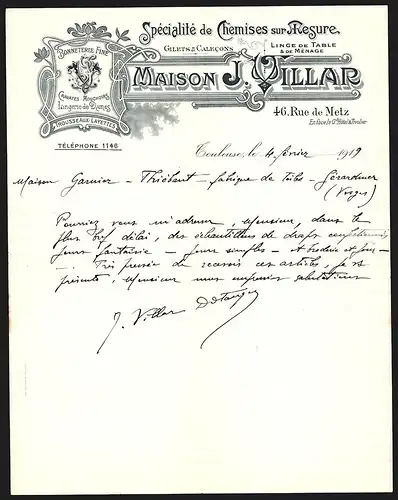 Spécialité de Chemises sur Mesure
GILETS & CALEÇONS
LINGE DE TABLE
& DE MÉNAGE
BONNETERIE FINE
CRAVATES MOUCHOIRS
Lingerie de Dames
TROUSSEAUX-LAYETTES
MAISON J. VILLAR
46. Rue de Metz
TÉLÉPHONE 1146
Toulouse, le 4 février 1919
Maison Garnier - Thiébaut - fabrique de - Gérardmer
(Vosges)
Pourriez vous m'adresser, Monsieur, dans le
plus bref délai, des échantillons de draps confectionnés
jours fantaisie - jours simples - et brodés et
Très pressé de recevoir ces articles, je vs
présente, Monsieur mes salutations
J. Villar